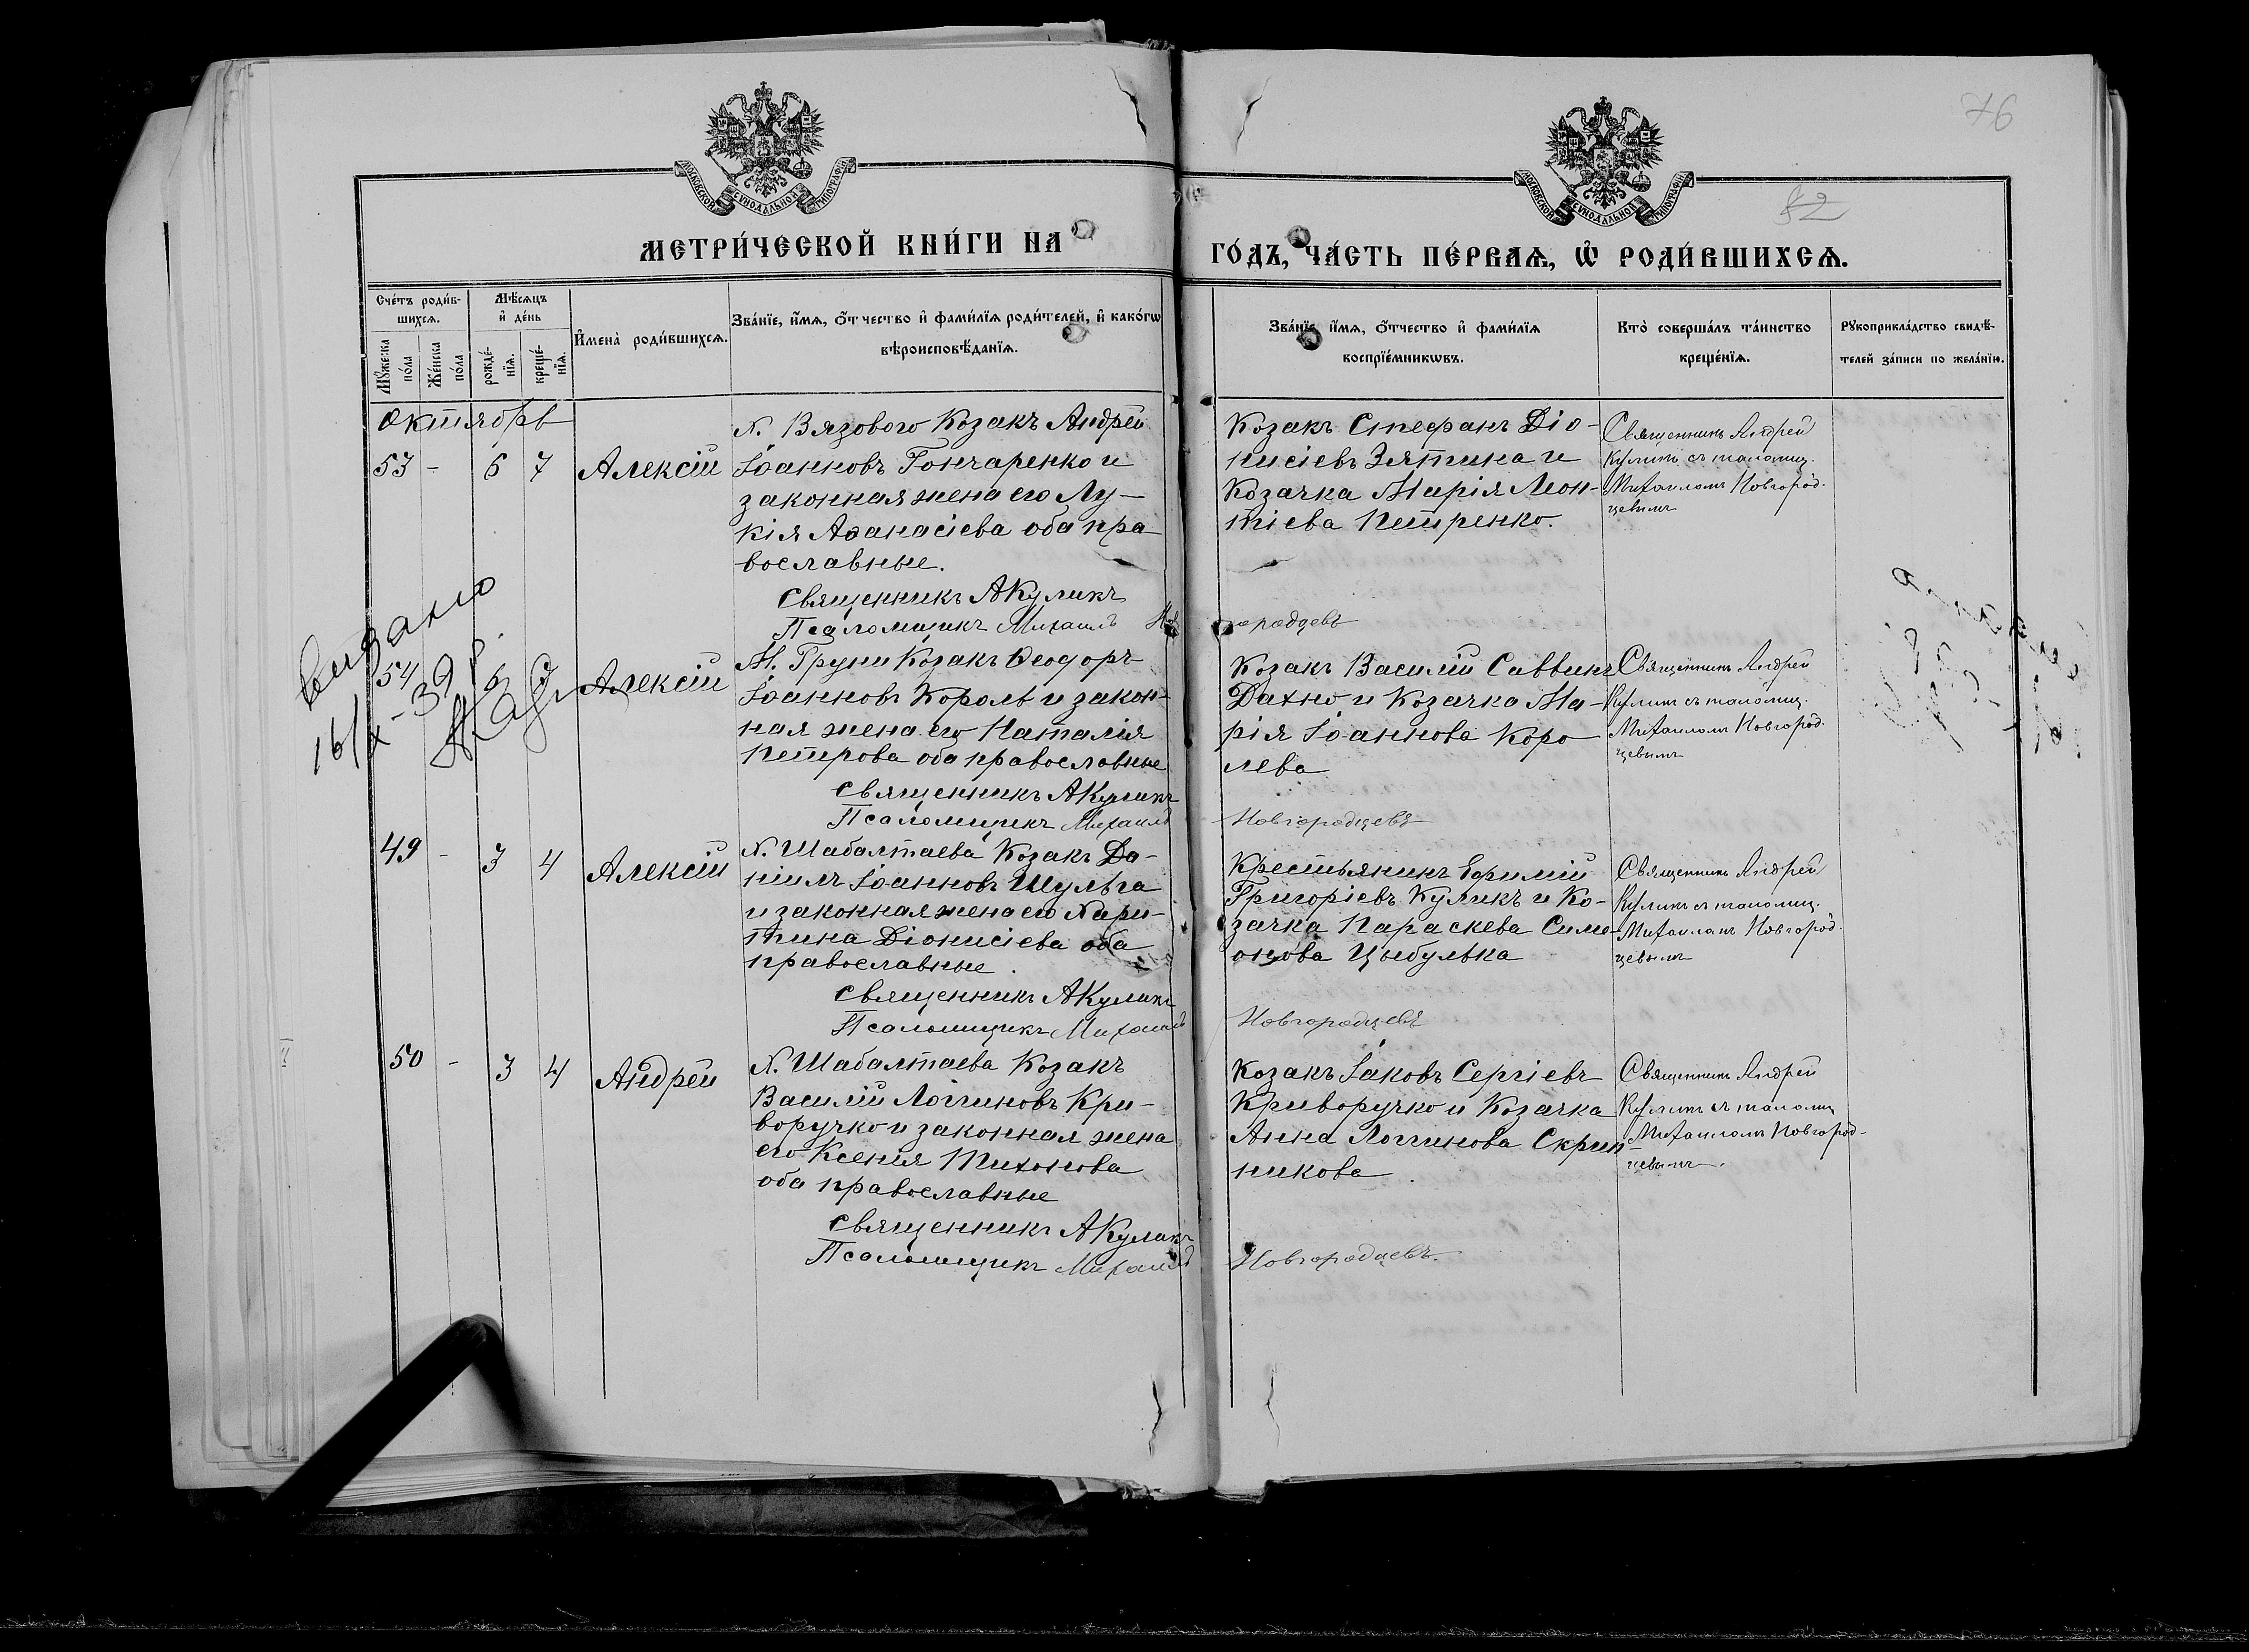 76
МОСКОВСКОЙ СУНОДАЛЬНОЙ ТИПОГРАФІИ
МОСКОВСКОЙ СУНОДАЛЬНОЙ ТИПОГРАФІИ
52
МЕТРИ́ЧЕСКОЙ КНИ́ГИ НА
ГО́ДЪ, ЧА́СТЬ ПЕ́РВАѦ, Ѡ҆ РОДИ́ВШИХСѦ.
Сче́тъ роди́в-
шихсѧ.
Мꙋ́жеска
по́ла
Же́нска
по́ла
Мѣ́сѧцъ
и҆ де́нь
рожде́-
нїѧ.
креще́-
нїѧ.
И҆мена̀ роди́вшихсѧ.
Зва́нїе, и҆́мѧ, ѻ҆́тчество и҆ фами́лїѧ роди́телей, и҆ како́гѡ
вѣроисповѣ́данїѧ.
Зва́нїе, и҆́мѧ, ѻ҆́тчество и҆ фами́лїѧ
воспрїе́мникѡвъ.
Кто̀ соверша́лъ та́инство
креще́нїѧ.
Рꙋкоприкла́дство свидѣ́-
телей за́писи по жела́нїю.
Октябрь
53 - 6 7 Алексій
Х. Вязового Козакъ Андрей
Іоанновъ Гончаренко и
законная жена его Лу-
кія Аѳанасіева оба пра-
вославные.
Священникъ АКуликъ
Псаломщикъ Михаилъ Новгородцевъ
Козакъ Стефанъ Діо-
нисіевъ Зятина и
Козачка Марія Леон-
тіева Петренко.
Священникъ Андрей
Куликъ съ псаломщ.
Михаиломъ Новгород-
цевымъ
выдано
16/X-39 р.
54 6 7 Алексій
М. Груни Козакъ Ѳеодоръ
Іоанновъ Король и закон-
ная жена его Наталія
Петрова оба православные
Священникъ АКуликъ
Псаломщикъ Михаилъ Новгородцевъ
Козакъ Василій Саввинъ
Дахно и Козачка Ма-
рія Іоаннова Коро
лева
Священникъ Андрей
Куликъ съ псаломщ.
Михаиломъ Новгород-
цевымъ
49 - 3 4 Алексій
Х. Шабалтаева Козакъ Да-
ніилъ Іоанновъ Шульга
и законная жена его Хари-
тина Діонисіева оба
православные.
Священникъ АКуликъ
Псаломщикъ Михаилъ Новгородцевъ
Крестьянинъ Ефимій
Григоріевъ Куликъ и Ко-
зачка Параскева Симе-
онова Цыбулька
Священникъ Андрей
Куликъ съ псаломщ.
Михаиломъ Новгород-
цевымъ
50 - 3 4 Андрей
Х. Шабалтаева Козакъ
Василій Логгиновъ Кри-
воручко и законная жена
его Ксенія Тихонова
оба православные
Священникъ АКуликъ
Псаломщикъ Михаилъ Новгородцевъ.
Козакъ Іаковъ Сергіевъ
Криворучко и Козачка
Анна Логгинова Скрип-
никова.
Священникъ Андрей
Куликъ съ псаломщ
Михаиломъ Новгород-
цевымъ.